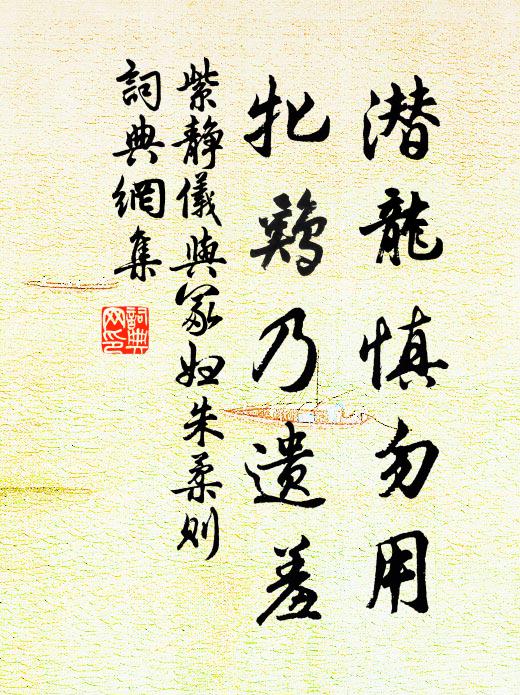 潜龍慎勿用
牝鷄乃遺羞
紫静儀與冢婦朱柔則
詞典網集
詞典網印